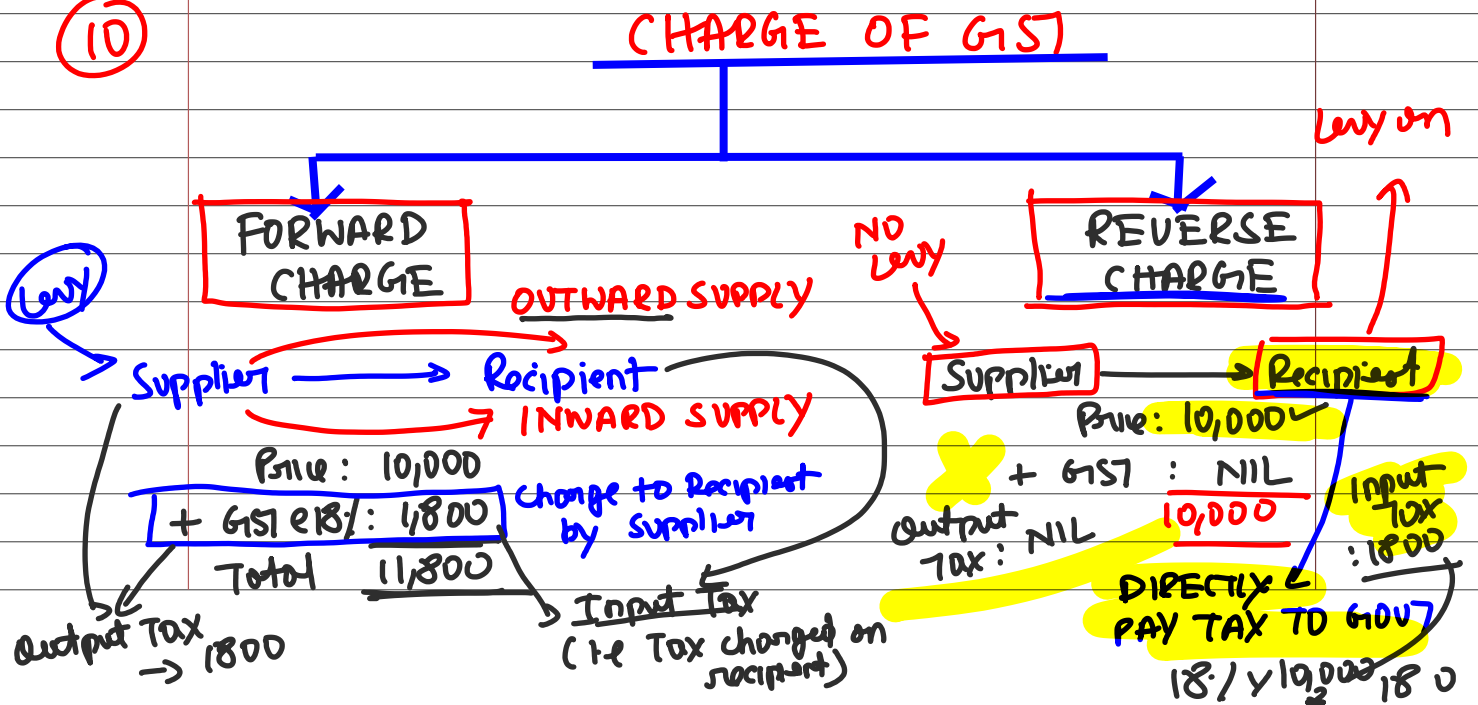 10
CHARGE OF GST
Levy on
FORWARD
CHARGE
NO
Levy
REVERSE
CHARGE
Levy
OUTWARD SUPPLY
Supplier
Recipient
INWARD SUPPLY
Price: 10,000
+ GST @ 18%: 1,800
Total 11,800
Charge to Recipient
by Supplier
Output Tax
→ 1800
Input Tax
(i.e Tax charged on
recipient)
Supplier
Recipient
Price: 10,000 ✓
+ GST : NIL
10,000
Output
Tax: NIL
Input
Tax
: 1800
DIRECTLY
PAY TAX TO GOVT
18% x 10,000